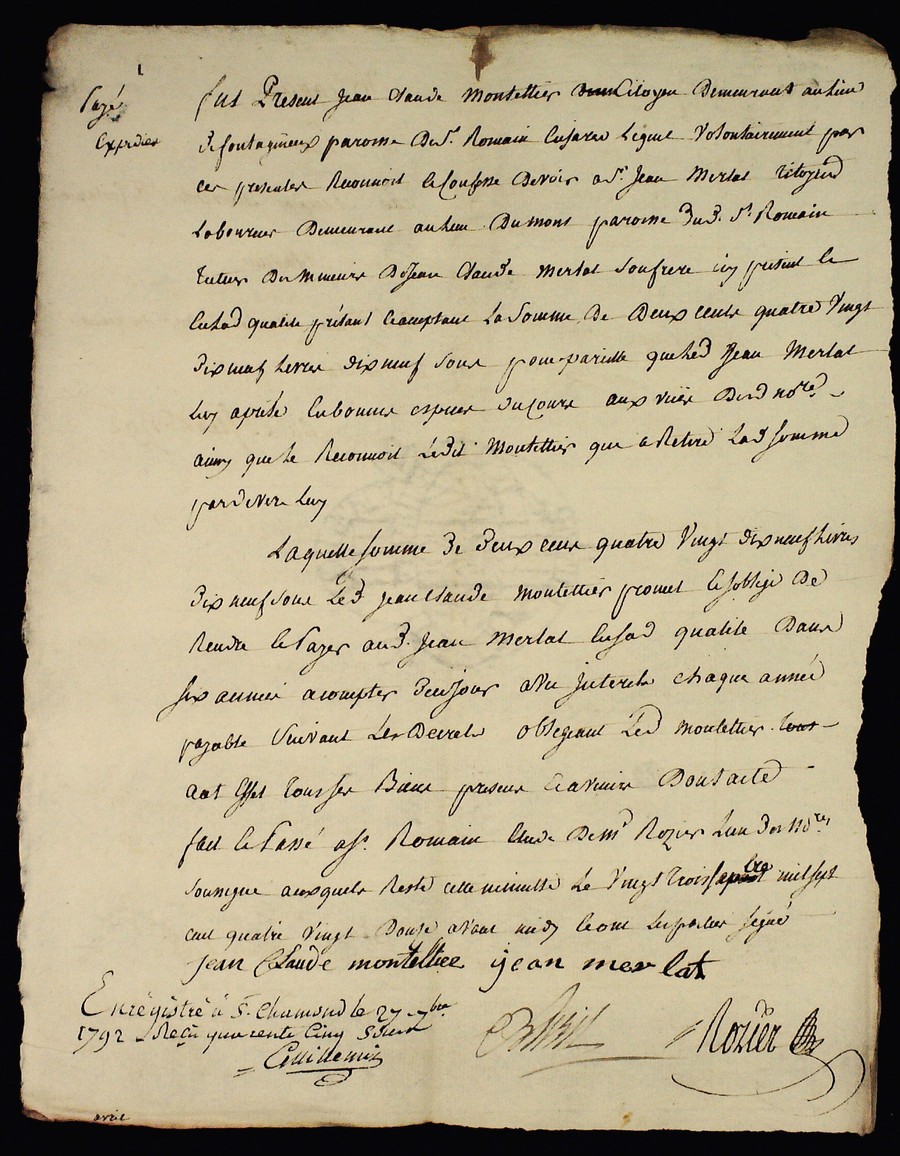 Payé
Expedier
fut Present Jean Claude Montellier Citoyen Demeurant au lieu
paroisse De St. Romain En jarez Lequel Volontairement par
ces presentes Reconnoit et Confesse Devoir a Sr. Jean Merlat Citoyen
Laboureur Demeurant au lieu Dumont paroisse Dud. St. Romain
tuteur Des mineurs De Jean Claude Merlat Son frere icy present et
En lad qualité et acceptant La Somme De Deux cents quatre Vingt
Dix neuf Livres dix neuf Sous pour pareille que led Jean Merlat
luy a preté En bonnes especes du Cours aux vües Dud nore.
ainsy que le Reconnoit Ledit Montellier qui a Retiré Lad Somme
pardevers luy
Laquelle Somme De Deux cens quatre Vingt dix neuf Livres
Dix neuf Sous Led Jean Claude Montellier promet et s'oblige De
Rendre et Payer aud. Jean Merlat En sad qualité Dans
six années a compter De ce jour avec Interets chaque année
payable Suivant Les Decrets obligeant Led Montellier
a cet Effet tous ses Biens presens et avenir Dont acte
fait et Passé a St. Romain Etude De Mr Rozier L'un Des nores
soussigné auxquels Reste cette minutte Le Vingt trois mil sept
cent quatre Vingt Douse avant midy et ont Les parties signé
jean Claude montellier jean merlat
Enrégistré à St. Chamond le 27 7bre.
1792 Reçu quarente Cinq Sous
Rozier